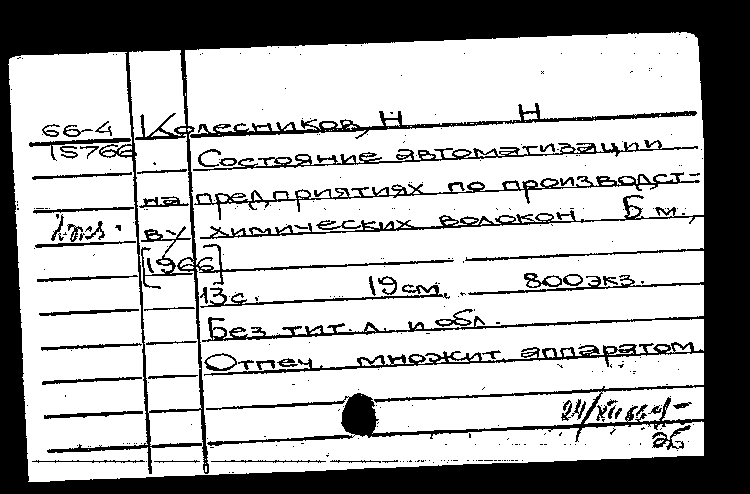 66-4 Колесников, Н Н
15766. Состояние автоматизации
на предприятиях по производст-
1экз. ву химических волокон. Б м.,
[1966]
13 с. 19 см. 800 экз.
Без тит. л. и обл.
Отпеч. множит. аппаратом.
24/XII 66